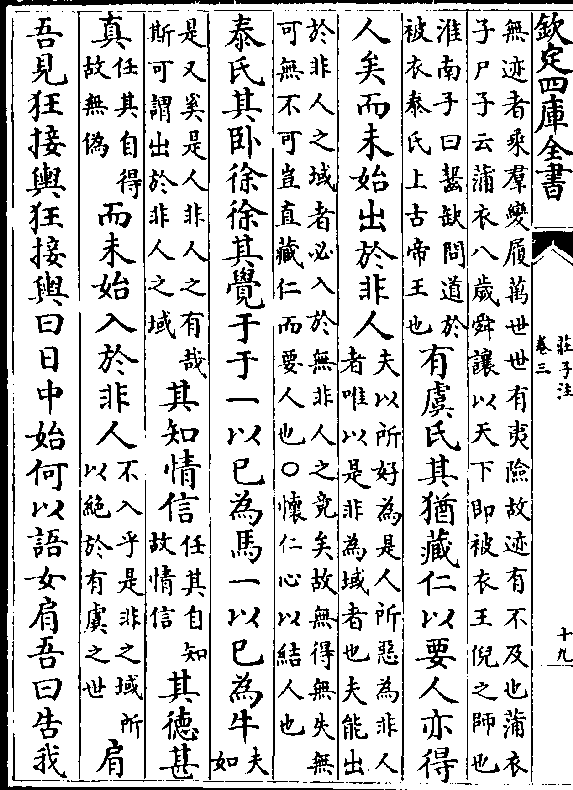 欽定四庫全書
莊子注
卷三
十九
無迹者乘羣變履萬世世有夷險故迹有不及也蒲衣
子尸子云蒲衣八歲舜讓以天下即被衣王倪之師也
淮南子曰齧缺問道於
被衣泰氏上古帝王也
有虞氏其猶藏仁以要人亦得
人矣而未始出於非人
夫以所好為是人所惡為非人
者唯以是非為域者也夫能出
於非人之域者必入於無非人之竟矣故無得無失無
可無不可豈直藏仁而要人也○懷仁心以結人也
泰氏其卧徐徐其覺于于一以已為馬一以已為牛
夫
如
是又奚是人非人之有哉
斯可謂出於非人之域
其知情信
任其自知
故情信
其德甚
真
任其自得
故無偽
而未始入於非人
不入乎是非之域所
以絶於有虞之世
肩
吾見狂接輿狂接輿曰日中始何以語女肩吾曰告我